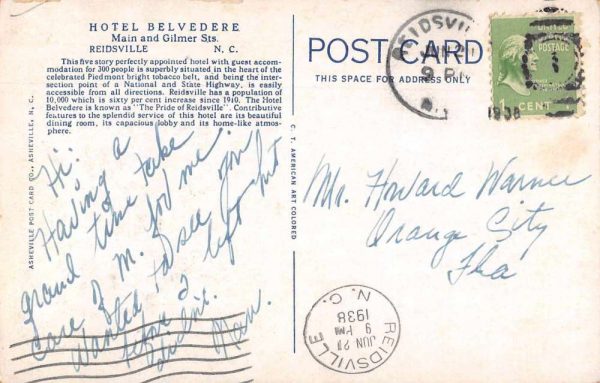 HOTEL BELVEDERE
Main and Gilmer Sts.
REIDSVILLE N. C.
This five story perfectly appointed hotel with guest accom-
modation for 300 people is superbly situated in the heart of the
celebrated Piedmont bright tobacco belt, and being the inter-
section point of a National and State Highway, is easily
accessible from all directions. Reidsville has a population of
10,000 which is sixty per cent increase since 1910. The Hotel
Belvedere is known as "The Pride of Reidsville". Contributive
features to the splendid service of this hotel are its beautiful
dining room, its capacious lobby and its home-like atmos-
phere.
Hi.
Having a
grand time take
Care of M. for me.
Wanted to see you
before I left but
didn't.
ASHEVILLE POST CARD CO., ASHEVILLE, N. C.
C. T. AMERICAN ART COLORED
POST CARD
THIS SPACE FOR ADDRESS ONLY
REIDSVILLE
JUN 21
9 PM
N.C.
1938
UNITED
POSTAGE
1 CENT
Mr. Howard Warner
Orange City
Fla
REIDSVILLE
JUN 21
9 PM
1938
N. C.